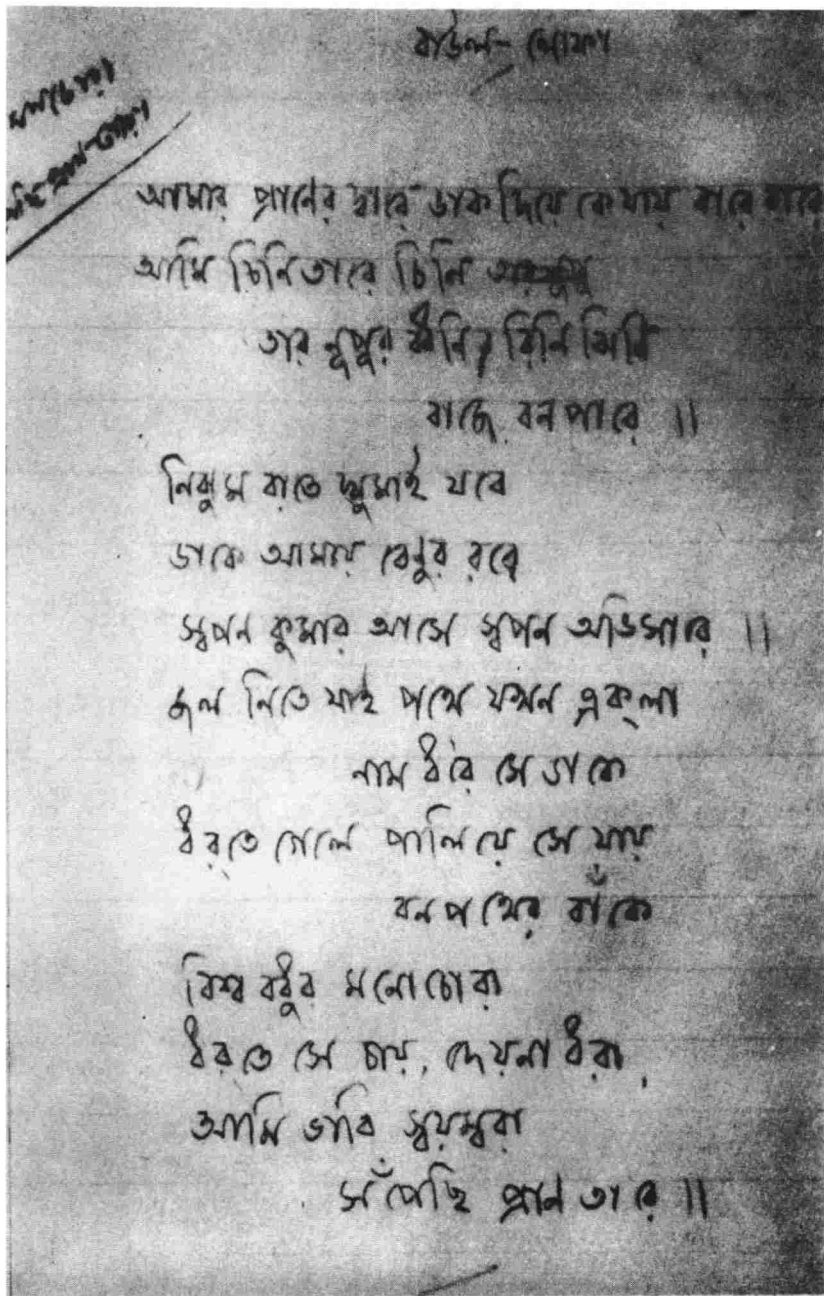 বাউল - লোফা
আমার প্রাণের দ্বারে ডাক দিয়ে কে যায় বারে বারে
আমি চিনি তারে চিনি
তার নূপুর ধ্বনি রিনি ঝিনি
বাজে বন পারে ||
নিঝুম রাতে ঘুমাই যবে
ডাকে আমায় বেণুর রবে
স্বপন কুমার আসে স্বপন অভিসারে ||
জল নিতে যাই পথে যখন এক্‌লা
নাম ধ'রে সে ডাকে
ধরতে গেলে পালিয়ে সে যায়
বন পথের বাঁকে
বিশ্ব বধূর মনোচোরা
ধরতে সে চায়, দেয়না ধরা,
আমি তারি স্বয়ম্বরা
সঁপেছি প্রাণ তারে ||